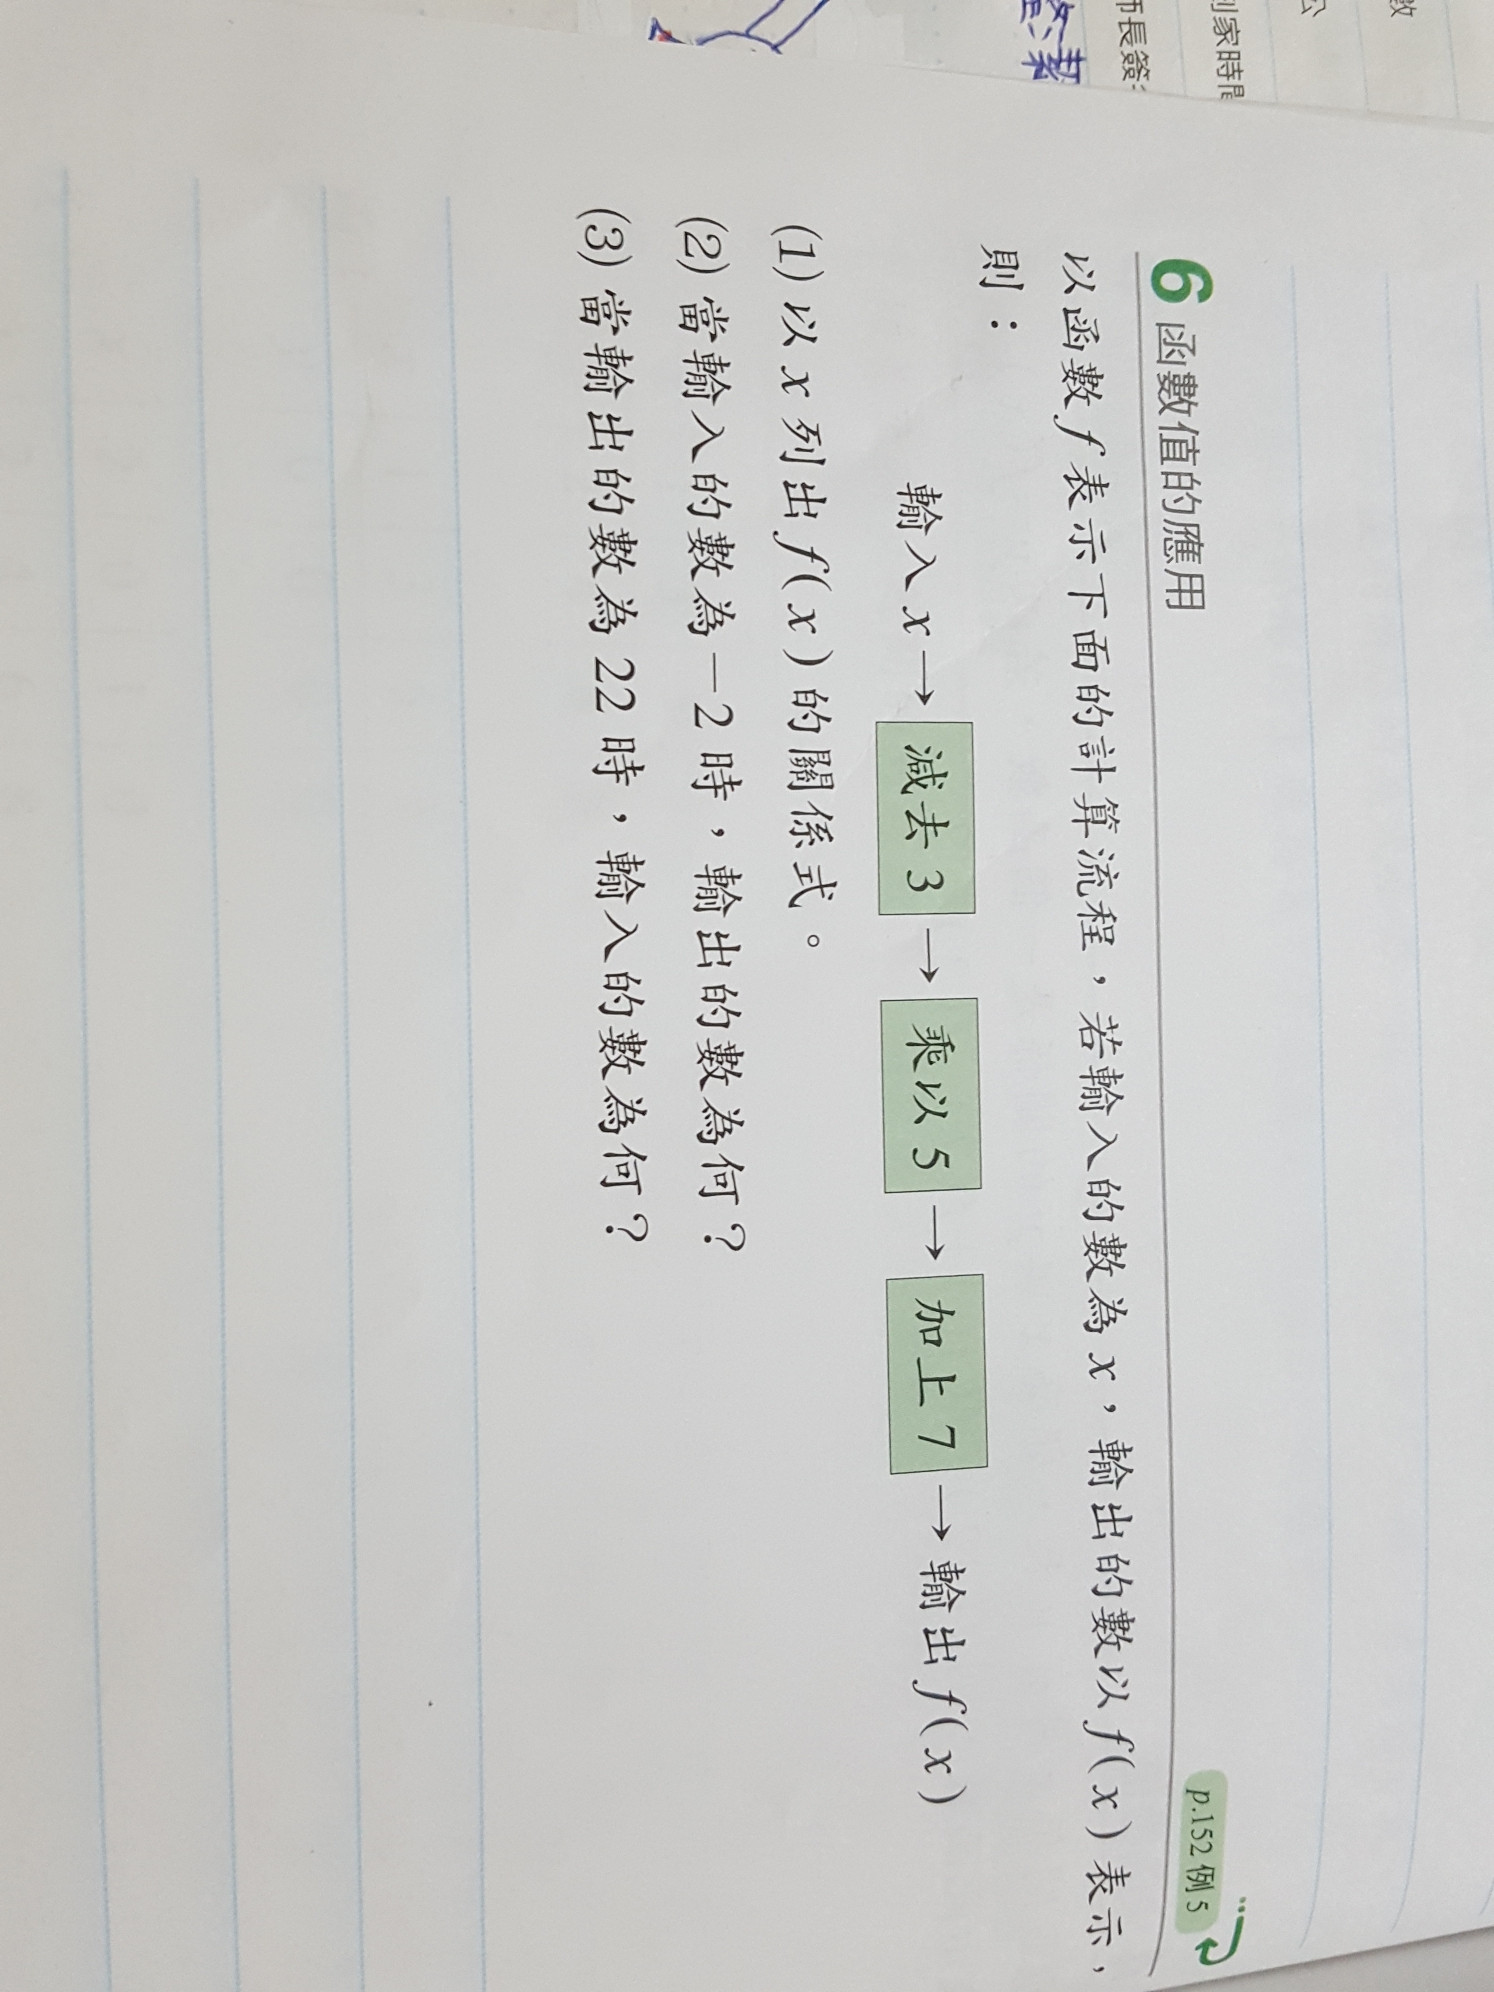 6 函數值的應用
p.152 例 5
以函數 f 表示下面的計算流程，若輸入的數為 x，輸出的數以 f(x) 表示，
則：
輸入 x → 減去 3 → 乘以 5 → 加上 7 → 輸出 f(x)
(1) 以 x 列出 f(x) 的關係式。
(2) 當輸入的數為 -2 時，輸出的數為何？
(3) 當輸出的數為 22 時，輸入的數為何？